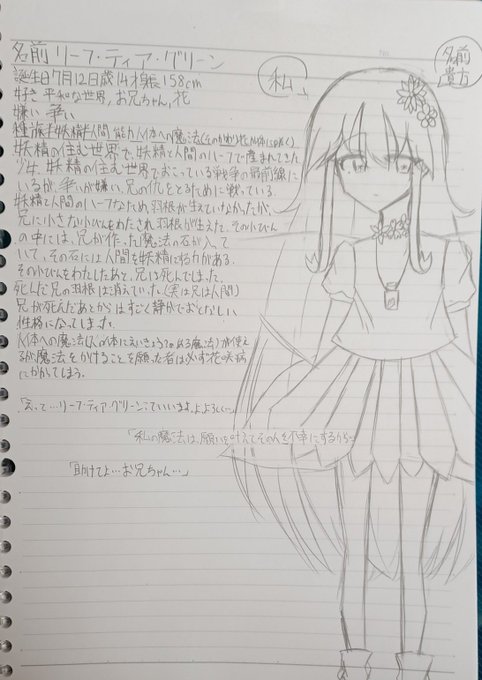 名前 リーフ・ティア・グリーン
誕生日7月12日歳14才身長158cm
好き 平和な世界,お兄ちゃん,花
嫌い 争い
種族 半妖精半人間 能力 人体への魔法
妖精の住む世界で、妖精と人間のハーフで産まれてきた
少女、妖精の住む世界でおこっている戦争の最前線に
いるが、争いが嫌い、兄の仇をとるために戦っている。
妖精と人間のハーフなため、羽根が生えていなかったが、
兄に小さな小びんをわたされ羽根が生えた、その小びん
の中には、兄が作った魔法の石が入って
いて、その石には人間を妖精にする力がある。
その小びんをわたしたあと、兄は死んでしまった。
死んだ兄の羽根は消えていった(実は兄は人間)
兄が死んだあとからはすごく静かでおとなしい
性格になってしまった。
人体への魔法(人の体にえいきょうのある魔法)が使え
るが魔法をかけることを願った者は必ず花咲病
にかかってしまう。
「えって…リーフ・ティア・グリーンっていいます。よ,よろしく…」
「私の魔法は、願いを叶えてその人を不幸にするから…」
「助けてよ…お兄ちゃん…」
私
名前
貴方